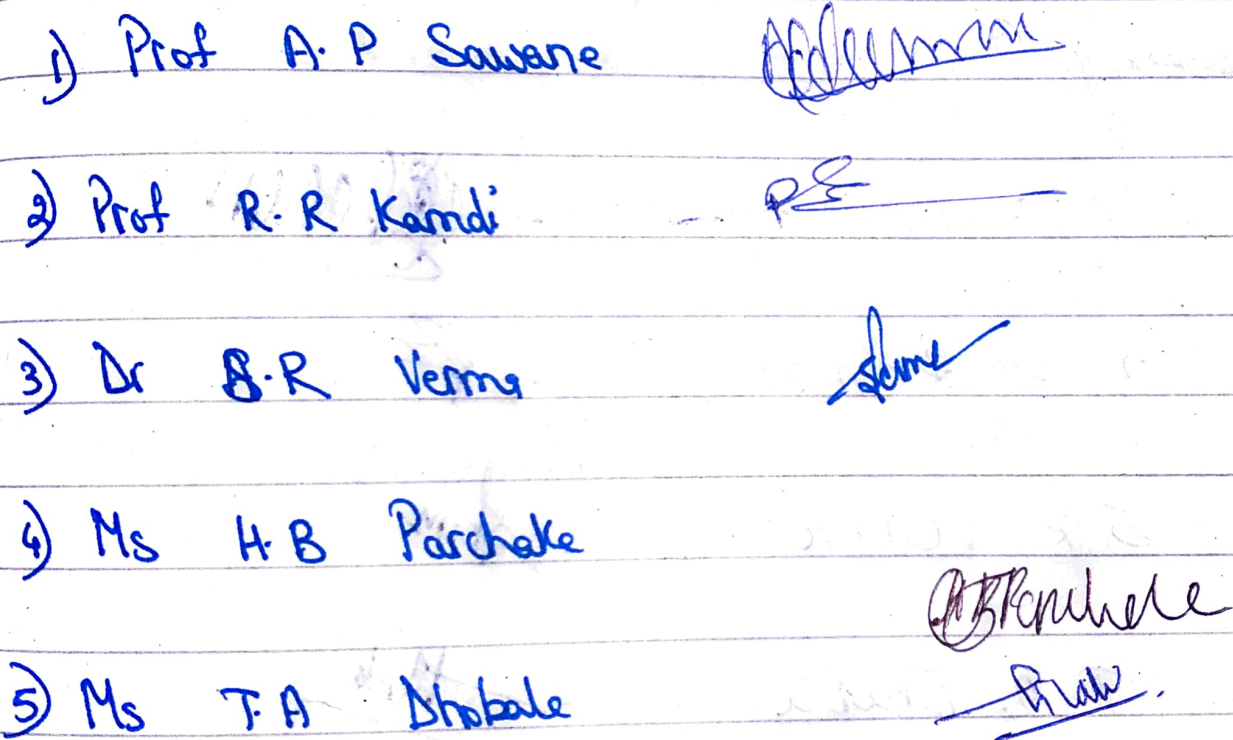 1) Prof A.P Sawane
2) Prof R.R Kamdi
3) Dr S.R Verma
4) Ms H.B Parchake
5) Ms T.A Dhobale